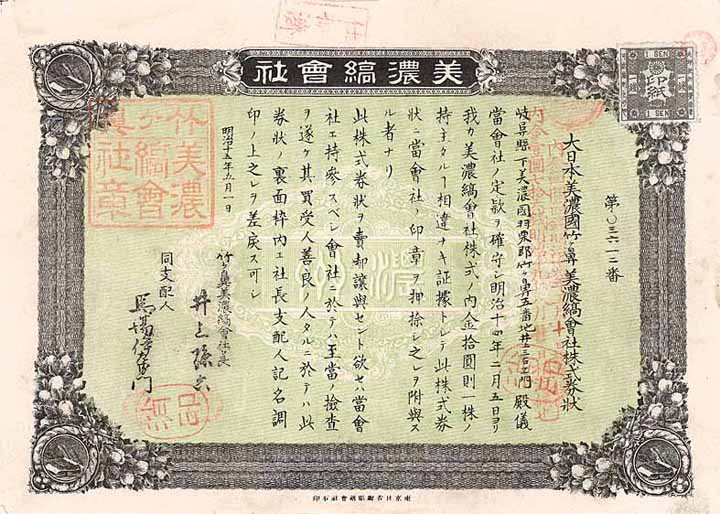 美濃縞會社
1 SEN 1 SEN
印紙
1 SEN 1 SEN
第〇三六一二番
大日本美濃國竹ヶ鼻美濃縞會社株式券狀
岐阜縣下美濃國羽栗郡竹ヶ鼻五番地井 殿儀
當會社ノ定款ヲ確守シ明治十四年二月五日ヨリ
我カ美濃縞會社株式ノ內金拾圓則一株ノ
持主タルヿ相違ナキ証據トシテ此株式券
狀ニ當會社ノ印章ヲ押捺シ之レヲ附與ス
ル者ナリ
此株式券狀ヲ賣却讓與セント欲セハ當會
社エ持參スベシ會社ニ於テハ至當ノ撿查
ヲ遂ケ其買受人善良ノ人タルニ於テハ此
券狀ノ裏面枠內エ社長支配人記名調
印ノ上之レヲ差戾ス可シ
明治十五年五月一日
竹ヶ鼻美濃縞會社社長
井上
同支配人
馬場 門
竹ヶ鼻
美濃縞會
社章